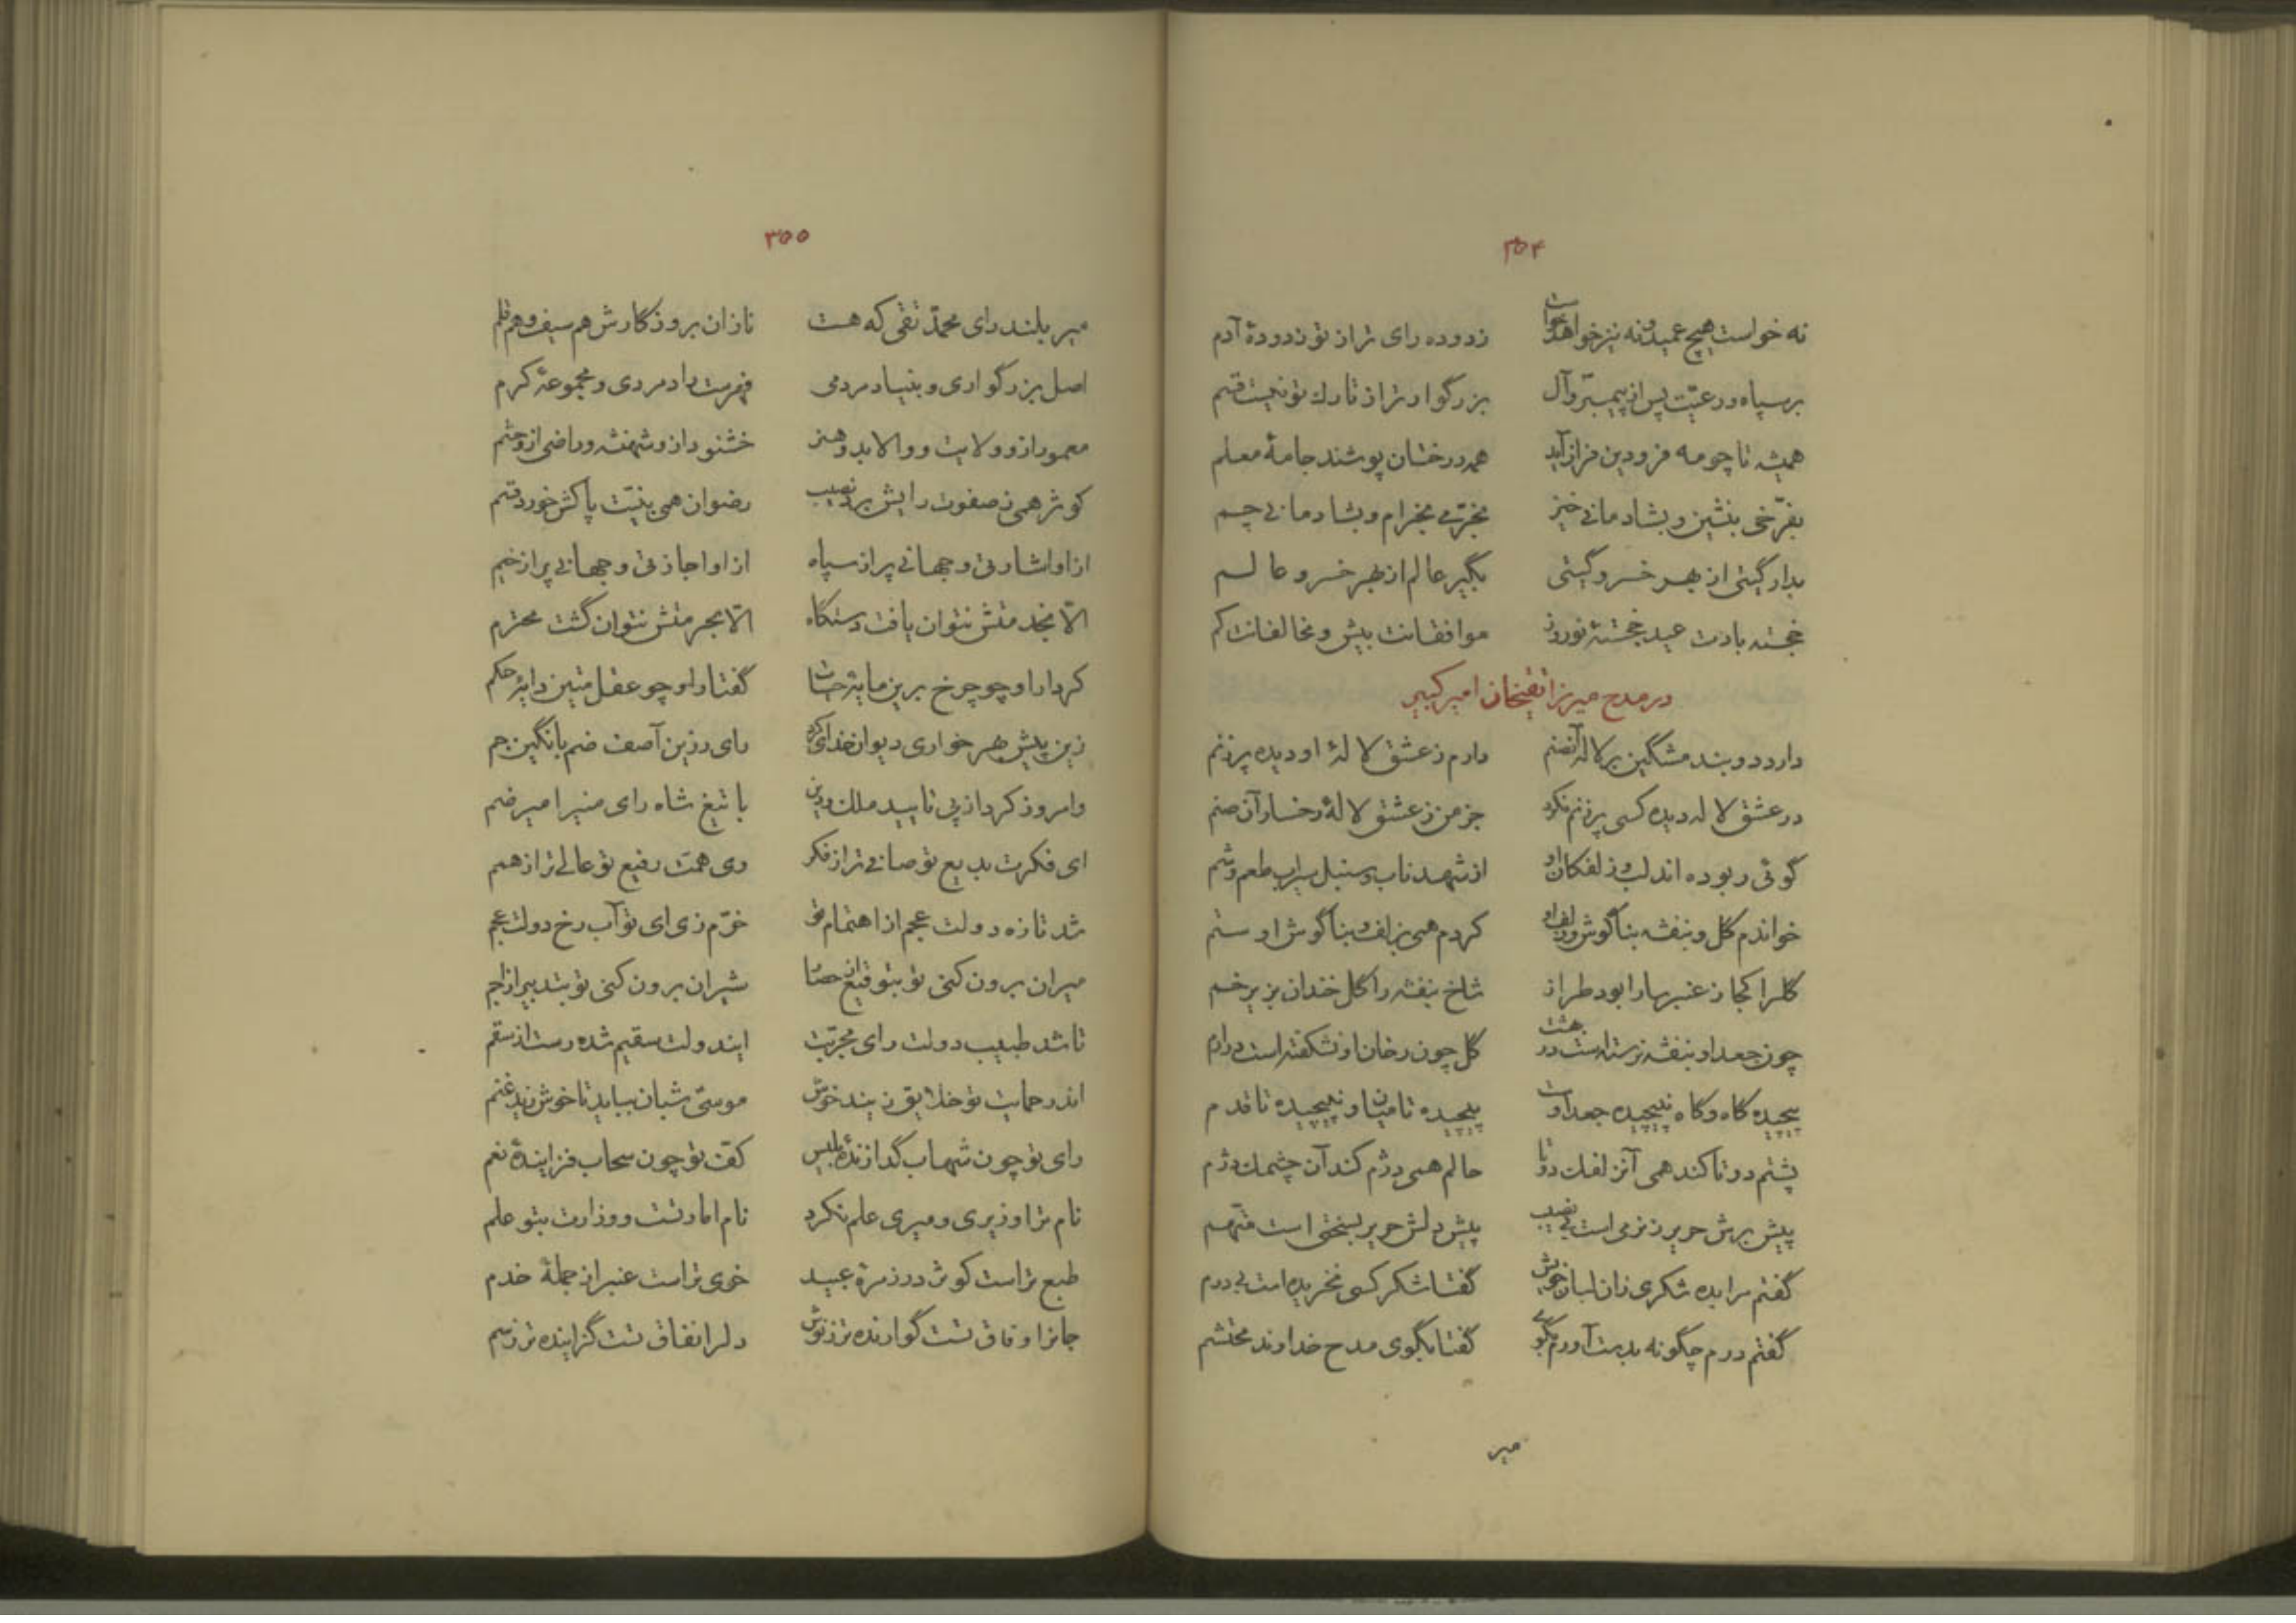 ۳۵۴
نه خواست هیچ عمید و نه نیز خواهد خواست زدوده رای تر از تو ز دودهٔ آدم
بر سپاه و رعیت پس از پیمبر و آل بزرگوارتر از تارك تو نیست قسم
همیشه تا چو مه فرودین فراز آید همه درختان پوشند جامهٔ معلم
بفرّخی بنشین و بشادمانی خیز بخرّمی بخرام و بشادمانی چم
بدار گیتی از بهر خسرو گیتی بگیر عالم از بهر خسرو عالم
خجسته بادت عید خجستهٔ نوروز موافقانت بیش و مخالفانت کم
در مدح میرزا تقیخان امیر کبیر
دارد دو بند مشگین بر لاله آنصنم دارم ز عشق لالهٔ او دیده پر ز نم
در عشق لاله دیده کسی پر ز نم نکرد جز من ز عشق لالهٔ رخسار آن صنم
گوئی ربوده اند لب و زلفکان او از شهد ناب و سنبل سیراب طعم و شم
خواندم گل و بنفشه بناگوش و زلف او کردم همی بزلف و بناگوش او ستم
گلرا کجا ز عنبر سارا بود طراز شاخ بنفشه را گل خندان بزیر خم
چون جعد او بنفشه نرسته است در بهشت گل چون رخان او نشکفته است در ارم
پیچیده گاه و گاه نپیچیده جعد اوست پیچیده تا میان و نپیچیده تا قدم
پشتم دو تا کند همی آنزلفك دو تا حالم همی دژم کند آن چشمك دژم
پیش برش حریر ز نرمی است بی نصیب پیش دلش حریر بسختی است متهم
گفتم مرا بده شکری زان لبان خویش گفتا شکر کسی نخریده است بی درم
گفتم درم چگونه بدست آورم بگوی گفتا بگوی مدح خداوند محتشم
میر
۳۵۵
میر بلند رای محمّد تقی که هست نازان بروزگارش هم سیف و هم قلم
اصل بزرگواری و بنیاد مردمی فهرست رادمردی و مجموعهٔ کرم
معمور ازو ولایت و والا بدو هنر خشنود ازو شهنشه و راضی ازو حشم
کوثر همی ز صفوت رایش برد نصیب رضوان همی بنیّت پاکش خورد قسم
از او اشارتی و جهانی پر از سپاه از او اجازتی و جهانی پر از خیم
الّا بخدمتش نتوان یافت دستگاه الّا بحرمتش نتوان گشت محترم
کردار او چو چرخ برین مایهٔ حیات گفتار او چو عقل متین دایهٔ حکم
زین پیش بهر خواری دیوان خدای کرد رای رزین آصف ضم با نگین جم
وامروز کرد از پی تایید ملك و دین با تیغ شاه رای منیر امیر ضم
ای فکرت بدیع تو صافی تر از فکر وی همت رفیع تو عالی تر از همم
شد تازه دولت عجم از اهتمام تو خرّم زی ای تو آب رخ دولت عجم
میران برون کنی تو بتوقیع از حصار شیران برون کنی تو بتدبیر از اجم
تا شد طبیب دولت رای مجربت ایندولت سقیم شده رست از سقم
اندر حمایت تو خلایق زیند خوش موسی شبان بباید تا خوش زید غنم
رای تو چون شهاب گدازندهٔ بلیس کفّ تو چون سحاب فزایندهٔ نعم
نام ترا وزیری و میری علم نکرد نام امارتست و وزارت بتو علم
طبع تراست کوثر در زمرهٔ عبید خوی تراست عنبر از جملهٔ خدم
جانرا وفاق تست گوارنده تر ز نوش دلرا نفاق تست گزاینده تر ز سم